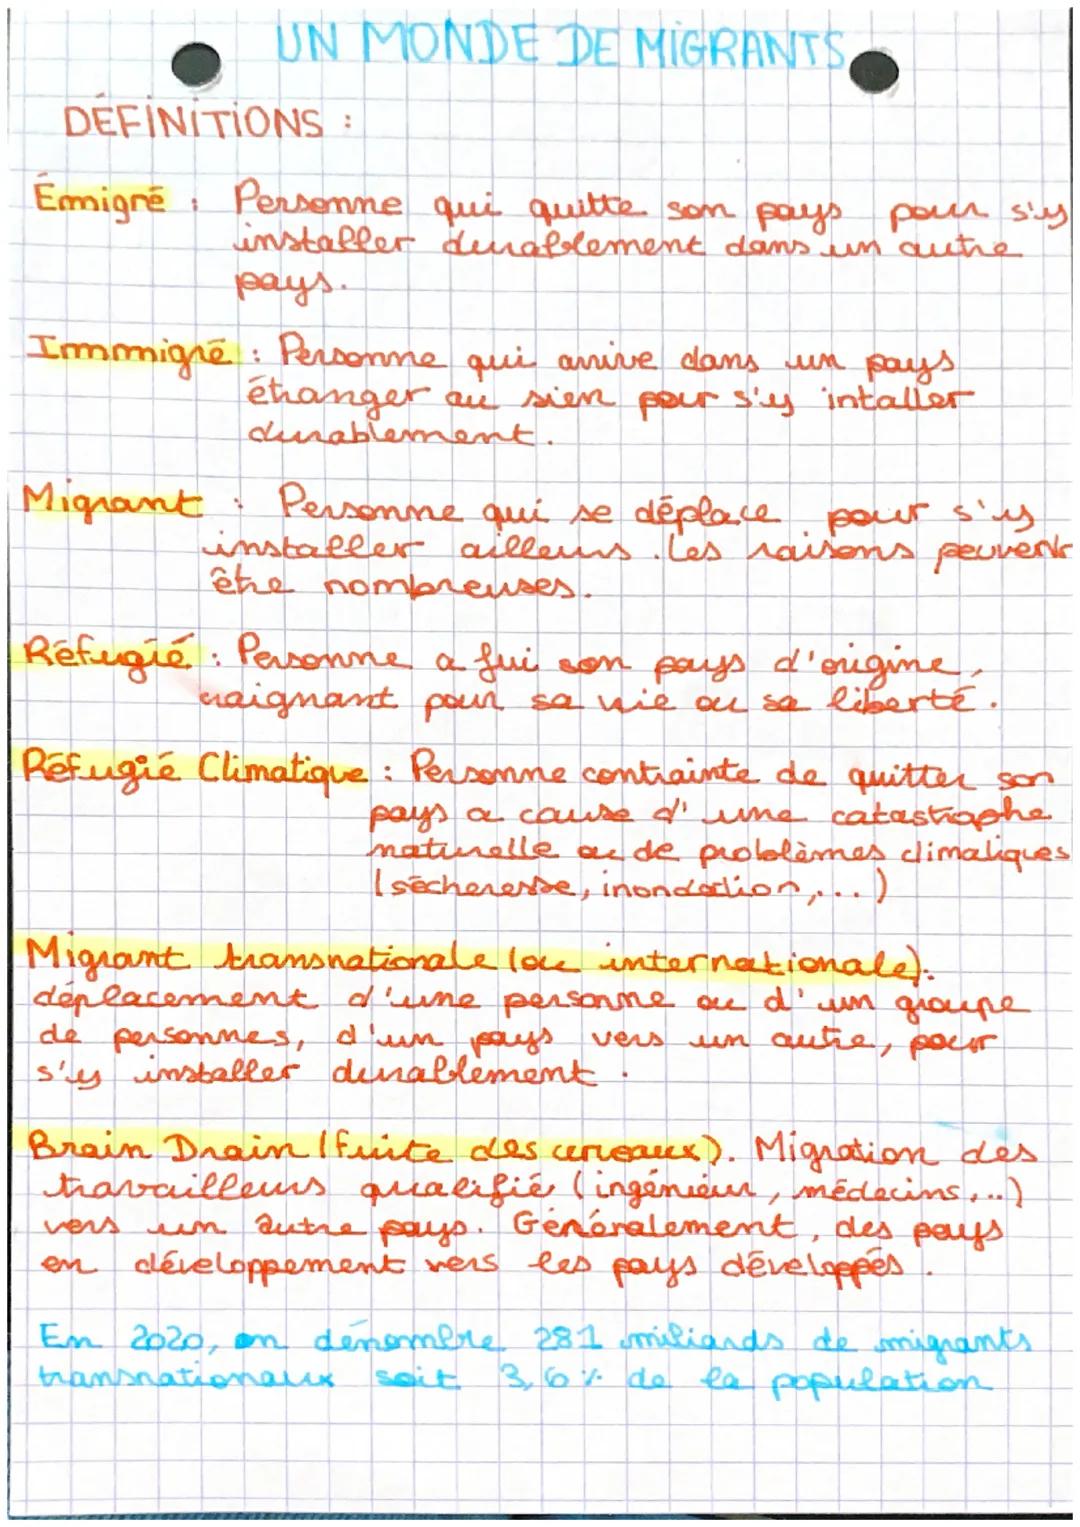 UN MONDE DE MIGRANTS
DÉFINITIONS :
Émigré : Personne qui quitte son pays pour s'y
installer durablement dans un autre
pays.
Immigré : Personne qui arrive dans un pays
étranger au sien pour s'y intaller
durablement.
Migrant : Personne qui se déplace pour s'y
installer ailleurs. Les raisons peuvent
être nombreuses.
Réfugié : Personne a fui son pays d'origine,
craignant pour sa vie ou sa liberté.
Réfugié Climatique : Personne contrainte de quitter son
pays a cause d'une catastrophe
naturelle ou de problèmes climatiques
(sécheresse, inondation,...)
Migrant transnationale (ou internationale).
déplacement d'une personne ou d'un groupe
de personnes, d'un pays vers un autre, pour
s'y installer durablement.
Brain Drain (fuite des cerveaux). Migration des
travailleurs qualifié (ingénieur, médecins,..)
vers un autre pays. Généralement, des pays
en développement vers les pays développés.
En 2020, on dénombre 281 miliards de migrants
transnationaux soit 3,6% de la population